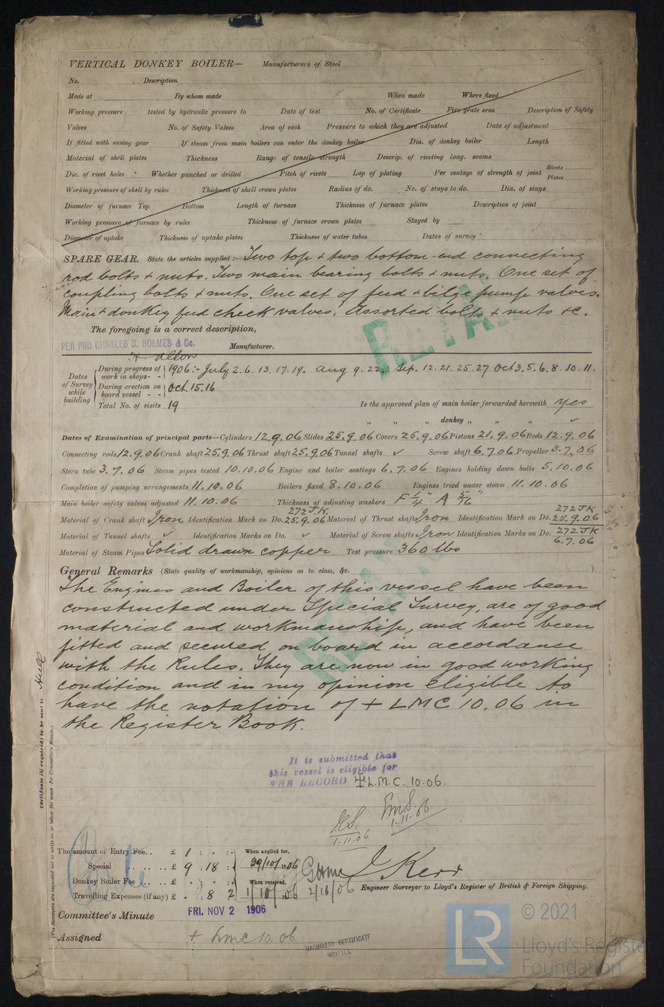 VERTICAL DONKEY BOILER— Manufacturers of Steel
No. Description
Made at By whom made When made Where fixed
Working pressure tested by hydraulic pressure to Date of test No. of Certificate Fire grate area Description of Safety
Valves No. of Safety Valves Area of each Pressure to which they are adjusted Date of adjustment
If fitted with easing gear If steam from main boilers can enter the donkey boiler Dia. of donkey boiler Length
Material of shell plates Thickness Range of tensile strength Descrip. of riveting long. seams
Dia. of rivet holes Whether punched or drilled Pitch of rivets Lap of plating Per centage of strength of joint Rivets Plates
Working pressure of shell by rules Thickness of shell crown plates Radius of do. No. of stays to do. Dia. of stays
Diameter of furnace Top Bottom Length of furnace Thickness of furnace plates Description of joint
Working pressure of furnace by rules Thickness of furnace crown plates Stayed by
Diameter of uptake Thickness of uptake plates Thickness of water tubes Dates of survey
SPARE GEAR. State the articles supplied:— Two top & two bottom-end connecting
rod bolts & nuts. Two main bearing bolts & nuts. One set of
coupling bolts & nuts. One set of feed & bilge pump valves.
Main & donkey feed check valves. Assorted bolts & nuts &c.
The foregoing is a correct description,
PER PRO CHARLES D. HOLMES & Co. Manufacturer.
RETAIN
Dates of Survey while building
During progress of work in shops - - 1906:- July 2.6.13.17.19. Aug 9.22. Sep. 12.21.25.27 Oct 3.5.6.8.10.11.
During erection on board vessel - - Oct. 15.16
Total No. of visits 19 Is the approved plan of main boiler forwarded herewith yes
" " " donkey " " "
Dates of Examination of principal parts—Cylinders 12.9.06 Slides 25.9.06 Covers 25.9.06 Pistons 21.9.06 Rods 12.9.06
Connecting rods 12.9.06 Crank shaft 25.9.06 Thrust shaft 25.9.06 Tunnel shafts ✓ Screw shaft 6.7.06 Propeller 3.7.06
Stern tube 3.7.06 Steam pipes tested 10.10.06 Engine and boiler seatings 6.7.06 Engines holding down bolts 5.10.06
Completion of pumping arrangements 11.10.06 Boilers fixed 8.10.06 Engines tried under steam 11.10.06
Main boiler safety valves adjusted 11.10.06 Thickness of adjusting washers F 1/4" A 5/16"
Material of Crank shaft Iron Identification Mark on Do. 272 J.K. 25.9.06 Material of Thrust shaft Iron Identification Mark on Do. 272 JK 25.9.06
Material of Tunnel shafts ✓ Identification Marks on Do. ✓ Material of Screw shafts Iron Identification Marks on Do. 272 JK 6.7.06
Material of Steam Pipes Solid drawn copper Test pressure 360 lbs
General Remarks (State quality of workmanship, opinions as to class, &c.
The Engines and Boiler of this vessel have been
constructed under Special Survey, are of good
material and workmanship, and have been
fitted and secured on board in accordance
with the Rules. They are now in good working
condition and in my opinion eligible to
have the notation of + LMC 10.06 in
the Register Book.
RETAIN
It is submitted that
this vessel is eligible for
THE RECORD + L.M.C. 10.06.
1.11.06
1.11.06
The amount of Entry Fee.. £ 1 : - : - When applied for,
Special £ 9 . 18 :
Donkey Boiler Fee £ When received,
Travelling Expenses (if any) £ : 8 2
J. Kerr
Engineer Surveyor to Lloyd's Register of British & Foreign Shipping.
Committee's Minute FRI. NOV 2 1906
Assigned + LMC 10.06
MACHINERY CERTIFICATE
WRITTEN
Hull
LR
© 2021
Lloyd's Register
Foundation